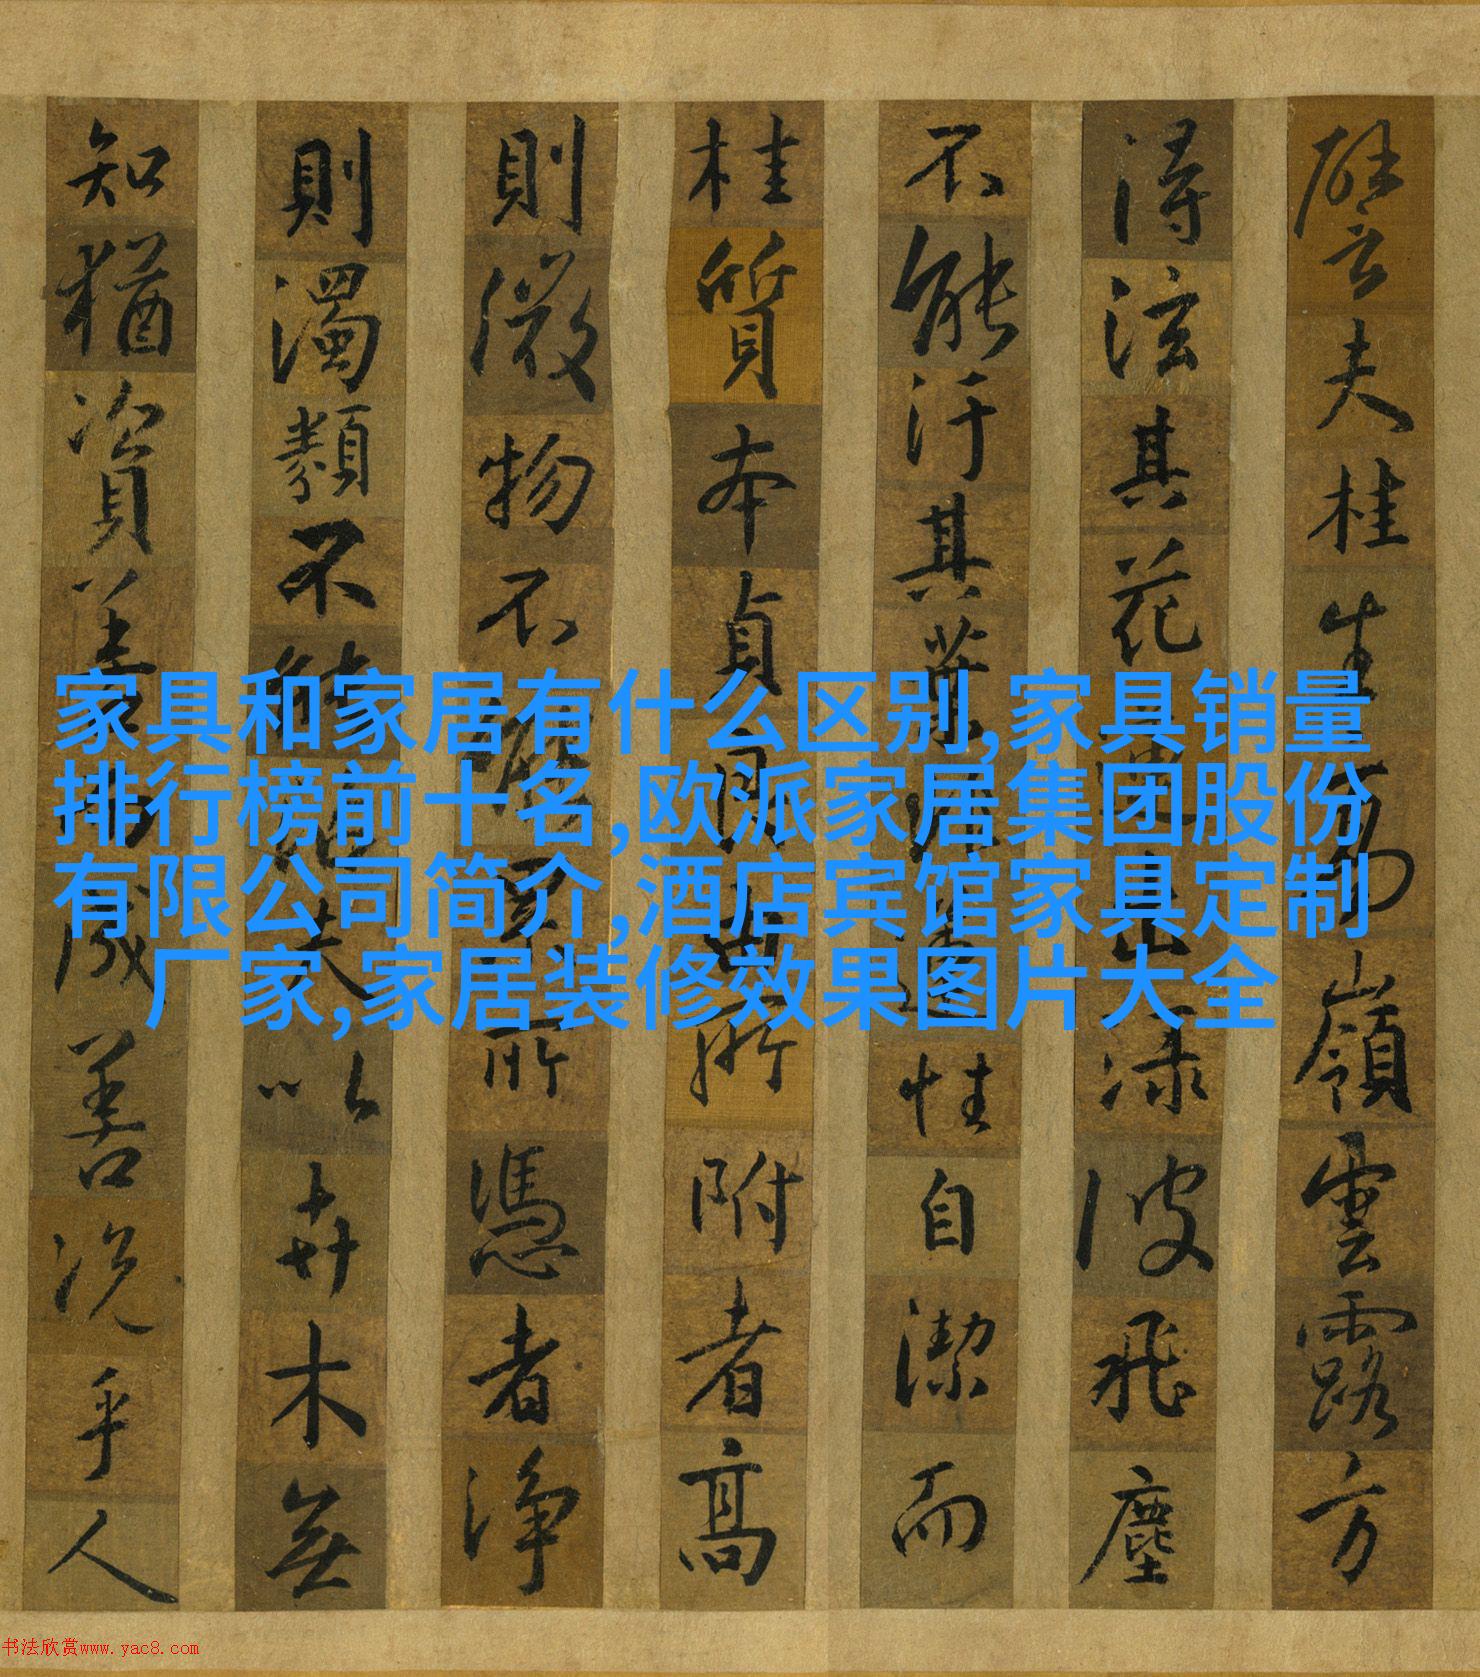 譬夫桂生高嶺雲露方
得泫其花蓮出淥波飛塵
不能汙其葉非蓮性自潔而
桂質本貞良由所附者高
則微物不能累所憑者淨
則濁類不能沾夫以卉木無
知猶資善而成善況乎人
家具和家居有什么区别,家具销量
排行榜前十名,欧派家居集团股份
有限公司简介,酒店宾馆家具定制
厂家,家居装修效果图片大全
书法欣赏www.yac8.com